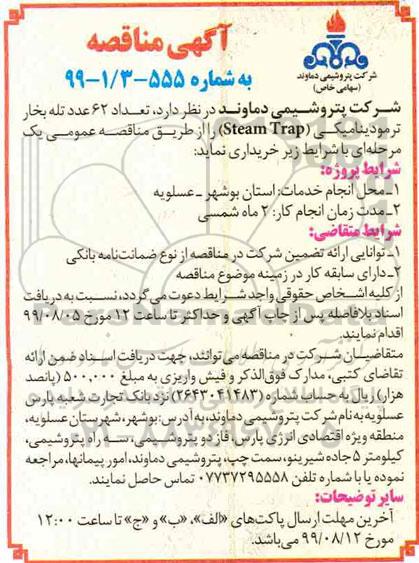 آگهی مناقصه
به شماره ۵۵۵-۹۹-۱/۳
شرکت پتروشیمی دماوند
(سهامی خاص)
شرکت پتروشیمی دماوند در نظر دارد، تعداد ۶۲ عدد تله بخار
ترمودینامیکی (Steam Trap) را از طریق مناقصه عمومی یک
مرحله‌ای با شرایط زیر خریداری نماید:
شرایط پروژه:
۱-محل انجام خدمات: استان بوشهر - عسلویه
۲-مدت زمان انجام کار: ۲ ماه شمسی
شرایط متقاضی:
۱- توانایی ارائه تضمین شرکت در مناقصه از نوع ضمانت‌نامه بانکی
۲-دارای سابقه کار در زمینه موضوع مناقصه
از کلیه اشخاص حقوقی واجد شرایط دعوت می گردد، نسبت به دریافت
اسناد بلافاصله پس از چاپ آگهی و حداکثر تا ساعت ۱۲ مورخ ۹۹/۰۸/۰۵
اقدام نمایند.
متقاضیان شرکت در مناقصه می‌توانند، جهت دریافت اسناد ضمن ارائه
تقاضای کتبی، مدارک فوق‌الذکر و فیش واریزی به مبلغ ۵۰۰,۰۰۰ (پانصد
هزار) ریال به حساب شماره (۲۶۴۳۰۴۱۴۸۳) نزد بانک تجارت شعبه پارس
عسلویه به نام شرکت پتروشیمی دماوند، به آدرس: بوشهر، شهرستان عسلویه،
منطقه ویژه اقتصادی انرژی پارس، فاز دو پتروشیمی، سه راه پتروشیمی،
کیلومتر ۵ جاده شیرینو، سمت چپ، پتروشیمی دماوند، امور پیمانها، مراجعه
نموده یا با شماره تلفن ۰۷۷۳۷۲۹۵۵۵۸ تماس حاصل نمایند.
سایر توضیحات:
آخرین مهلت ارسال پاکت‌های «الف»، «ب» و «ج» تا ساعت ۱۲:۰۰
مورخ ۹۹/۰۸/۱۲ می‌باشد.